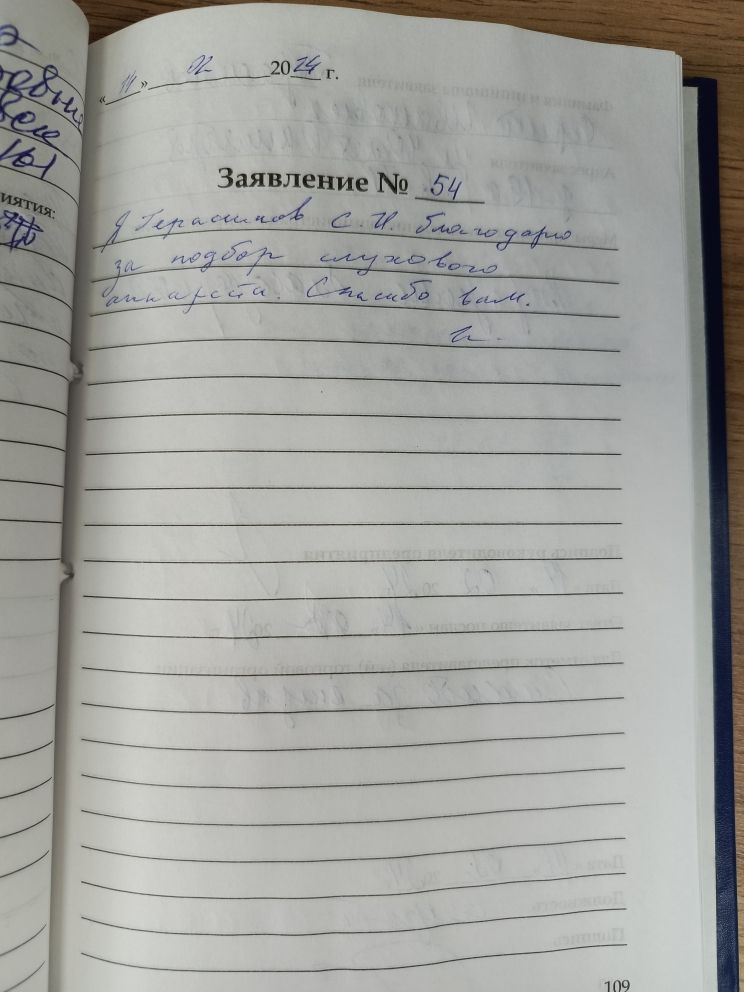 « 14 » 02 2024 г.
Заявление № 54
Я Герасимов С. И. благодарю
за подбор слухового
аппарата. Спасибо вам.
иятия:
109